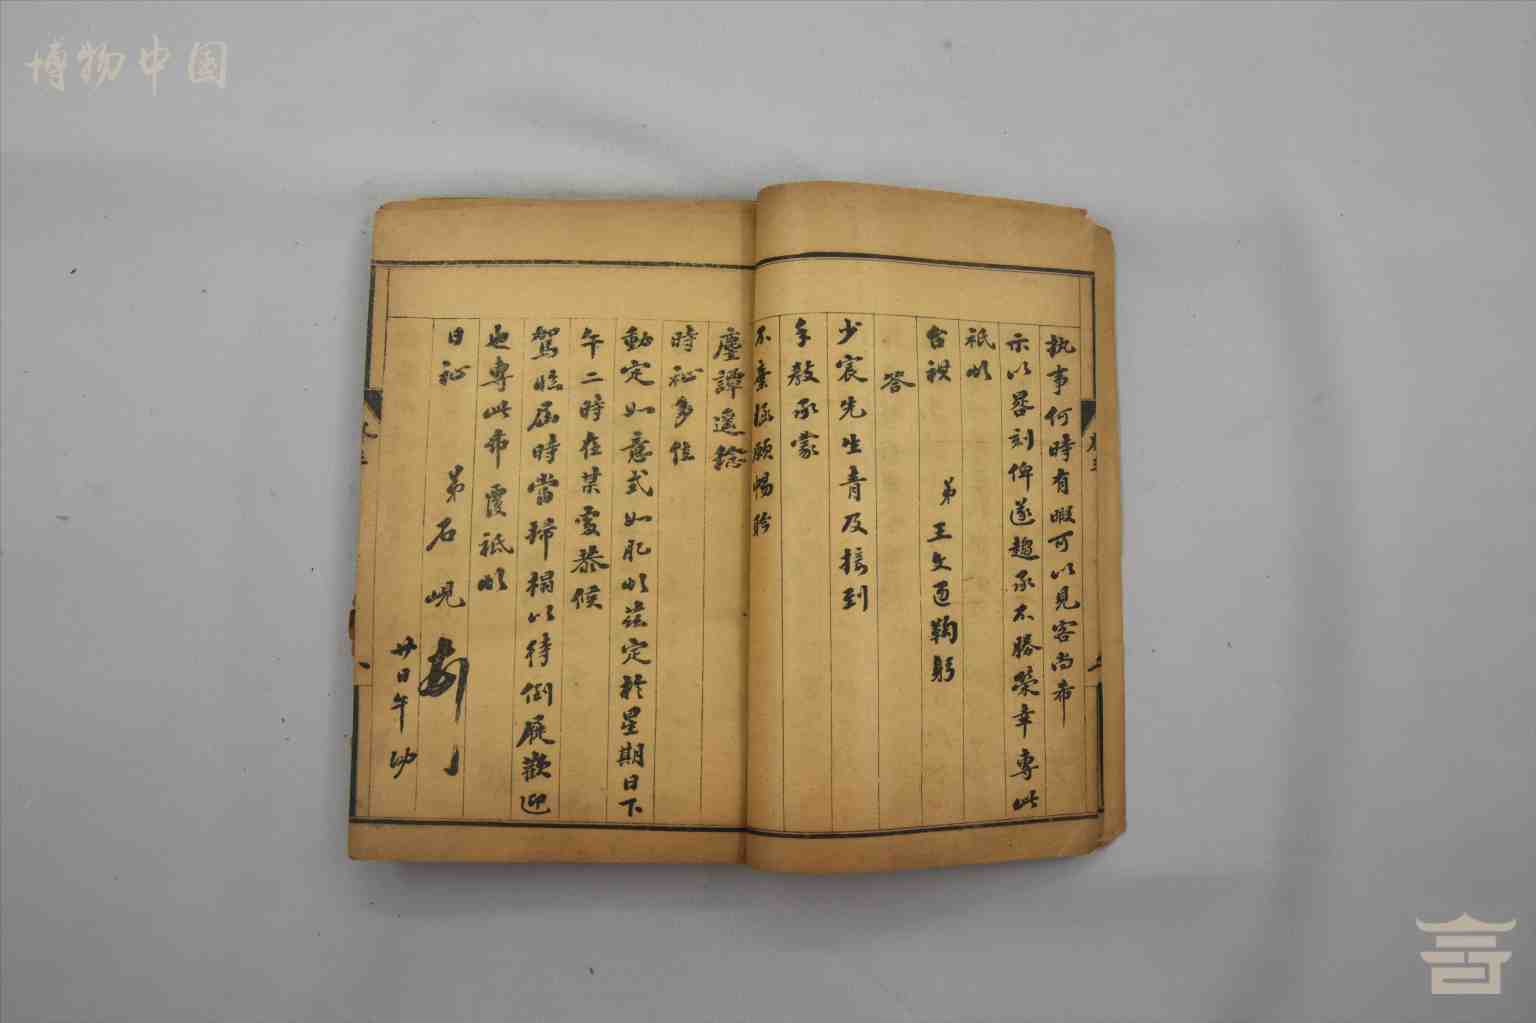 博物中国
执事何時有暇可以見客尚希
示以晷刻俾遂趨承不勝榮幸專此
祗頌
台祺
弟王文迺鞠躬
答
少宸先生青及接到
手教承蒙
不棄極願暢聆
麈譚遙稔
時祉多佳
動定如意式如肊頌茲定於星期日下
午二時在某處恭候
駕臨屆時當掃榻以待倒屣歡迎
也專此布覆祗頌
日祉
弟石峴
廿日午